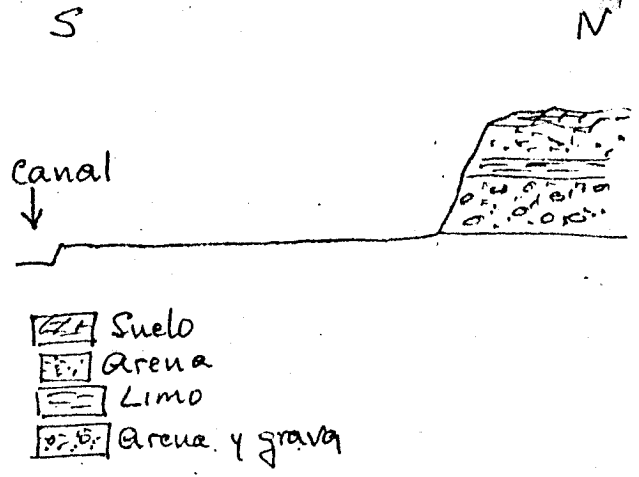 S N
canal
Suelo
Arena
Limo
Arena y grava